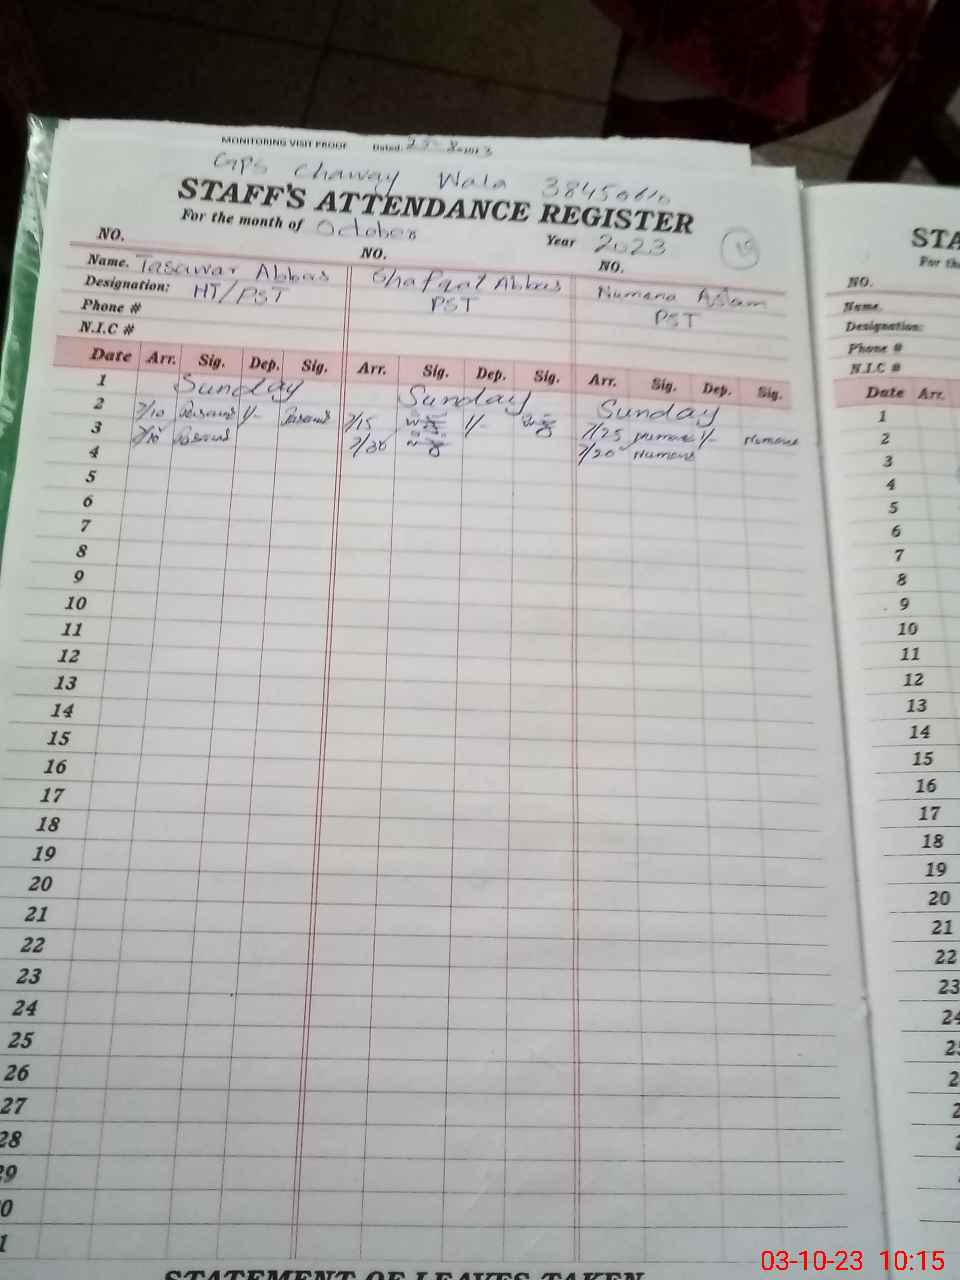 MONITORING VISIT PROOF Dated. 25-8-2023
GPS Chaway Wala 38450010
STAFF'S ATTENDANCE REGISTER
For the month of October Year 2023
NO. NO. NO.
Name. Tasawar Abbas Shafqat Abbas Numana Aslam
Designation: HT/PST PST PST
Phone #
N.I.C #
Date Arr. Sig. Dep. Sig. Arr. Sig. Dep. Sig. Arr. Sig. Dep. Sig.
1 Sunday Sunday Sunday
2 7/10 1/- 7/15 1/- 7/25 1/-
3 7/10 7/30 7/20
4
5
6
7
8
9
10
11
12
13
14
15
16
17
18
19
20
21
22
23
24
25
26
27
28
29
STATEMENT OF LEAVES TAKEN
NO.
Name.
Designation:
Phone #
N.I.C #
Date Arr.
1
2
3
4
5
6
7
8
9
10
11
12
13
14
15
16
17
18
19
20
21
22
23
03-10-23 10:15